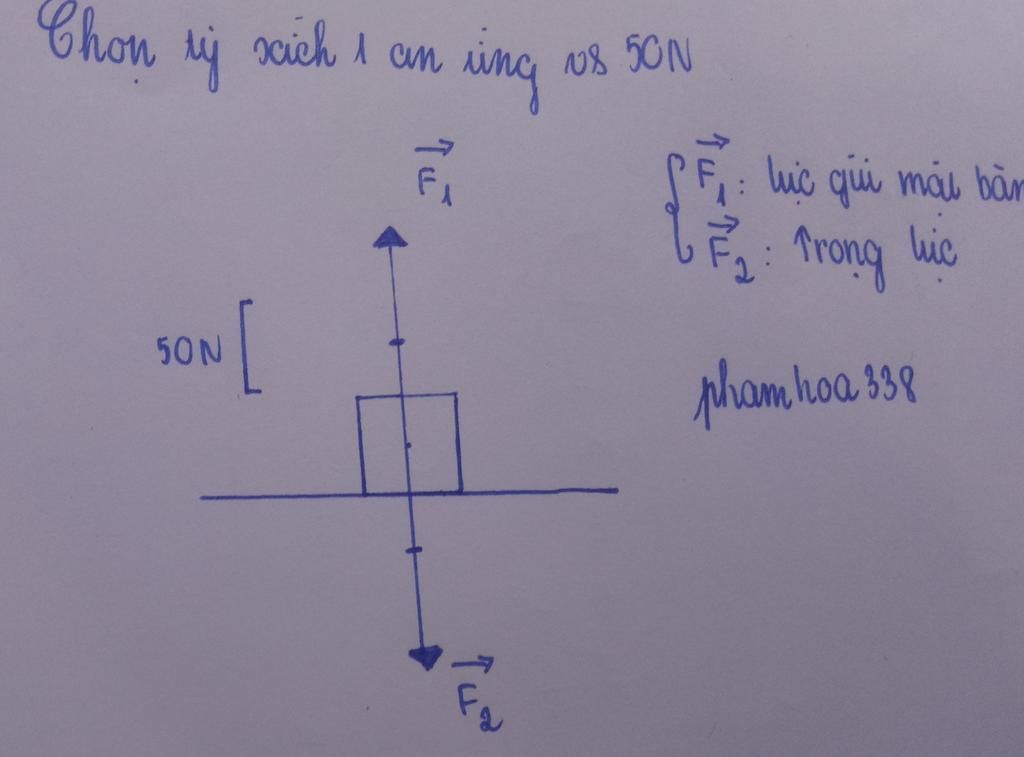 Chọn tỷ xích 1 cm ứng vs 50N
F₁
F₁: lực gửi mặt bàn
F₂: Trọng lực
50N
phamhoa338
F₂